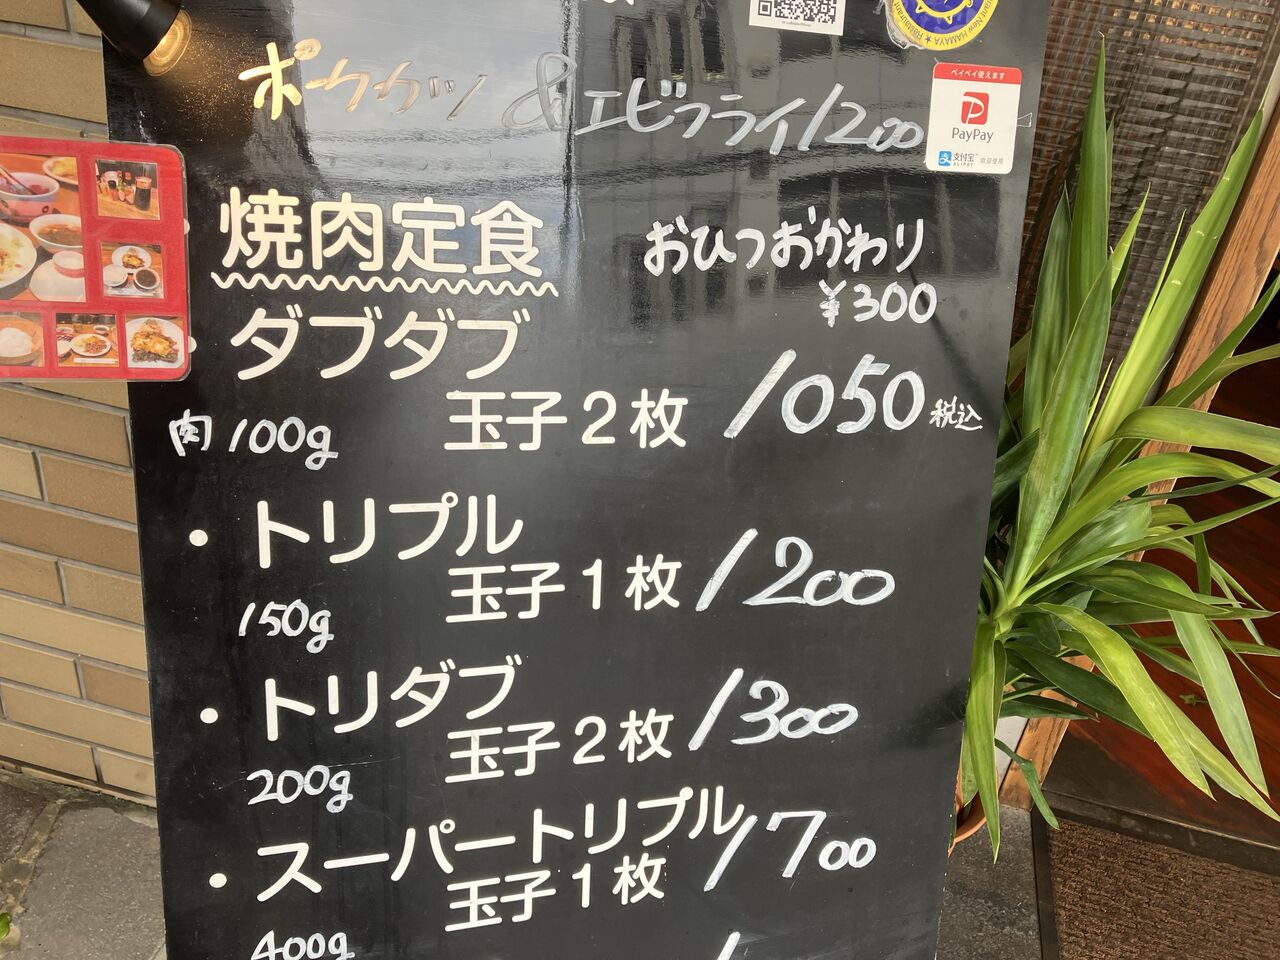 ポークカツ & エビフライ 1200
Restaurant New HAMAYA ★ Restaurant
ペイペイ使えます
PayPay
支付宝
ALIPAY
欢迎使用
焼肉定食
おひつおかわり
¥300
ダブダブ
玉子2枚 1050 税込
肉 100g
・トリプル
玉子1枚 1200
150g
・トリダブ
玉子2枚 1300
200g
・スーパートリプル
玉子1枚 1700
400g